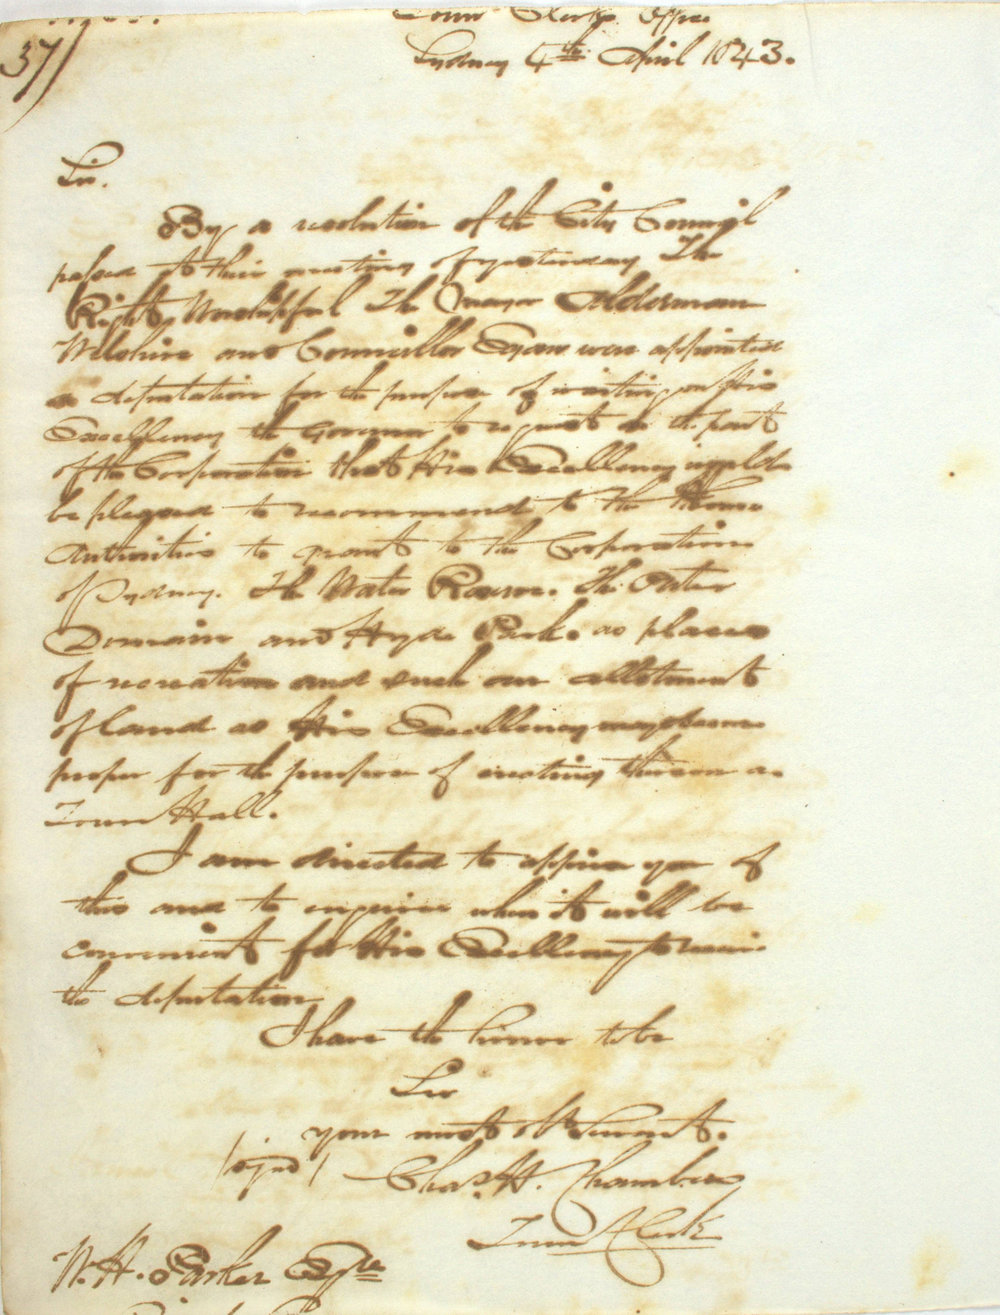 37)
Town Clerks Office
Sydney 4th April 1843.
Sir.
By a resolution of the City Council
passed at their meeting of yesterday The
Right Worshipful The Mayor Alderman
Wilshire and Councillor Egan were appointed
a deputation for the purpose of waiting on His
Excellency the Governor to request on the part
of the Corporation that His Excellency would
be pleased to recommend to the Home
Authorities to grant to the Corporation
of Sydney. The Water Reserve. The Outer
Domain and Hyde Park. as places
of recreation and such an allotment
of land as His Excellency may deem
proper for the purpose of erecting thereon a
Town Hall.
I am directed to apprise you of
this and to enquire when it will be
convenient for His Excellency to receive
the deputation
I have the honor to be
Sir
your most obt Servant.
(signd) Chas. H. Chambers
Town Clerk
W. H. Parker Esqre